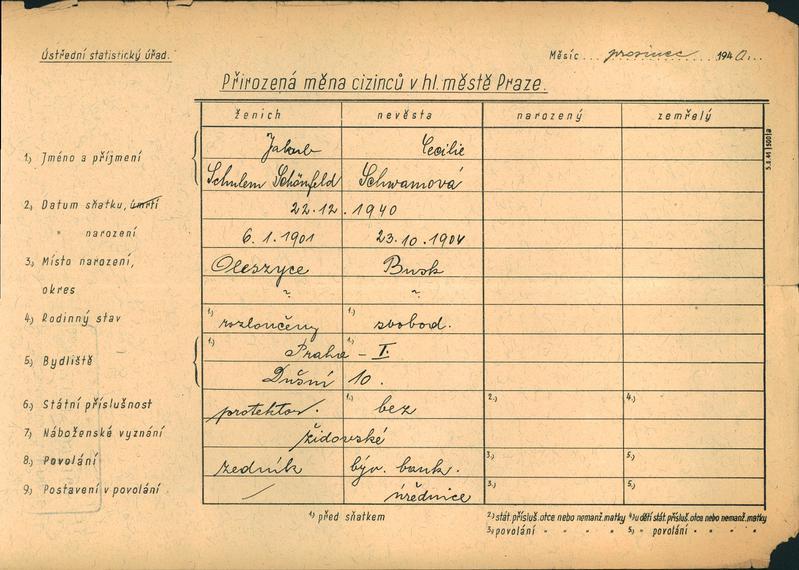 Ústřední statistický úřad.
Měsíc prosinec 1940.
Přirozená měna cizinců v hl. městě Praze.
ženich nevěsta narozený zemřelý
1) Jméno a příjmení Jakub Cecilie
Schulem Schönfeld Schwamová
2) Datum sňatku, úmrtí 22.12.1940
" narození 6.1.1901 23.10.1904
3) Místo narození, Oleszyce Busk
okres ~ ~
4) Rodinný stav 1) rozloučený 1) svobod.
5) Bydliště 1) Praha – I. 1)
Dušní 10.
6) Státní příslušnost protektor. 1) bez 2) 4)
7) Náboženské vyznání židovské
8) Povolání zedník býv. bank. 3) 5)
9) Postavení v povolání / úřednice 3) 5)
1) před sňatkem
2) stát. přísluš. otce nebo nemanž. matky 4) u dětí stát. přísluš. otce nebo nemanž. matky
3) povolání " " " " 5) " povolání " " " "